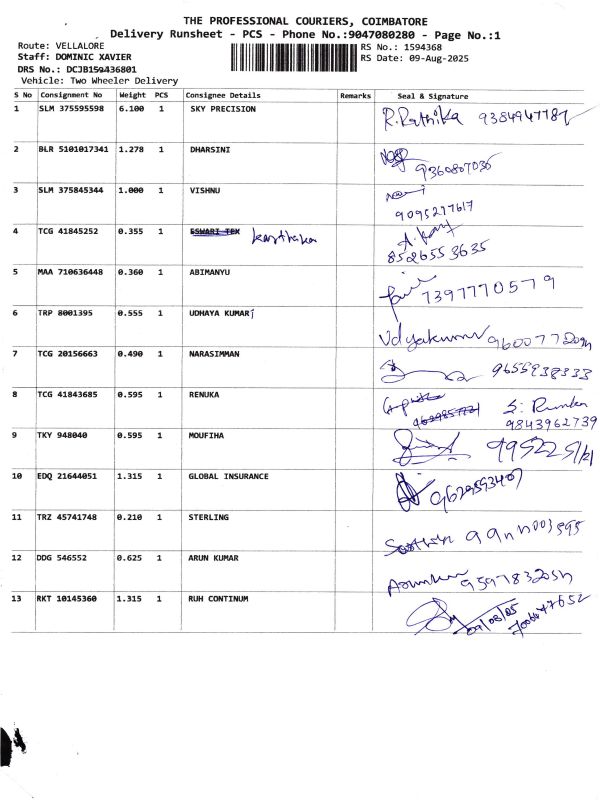 THE PROFESSIONAL COURIERS, COIMBATORE
Delivery Runsheet - PCS - Phone No.:9047080280 - Page No.:1
Route: VELLALORE RS No.: 1594368
Staff: DOMINIC XAVIER RS Date: 09-Aug-2025
DRS No.: DCJB159436801
Vehicle: Two Wheeler Delivery
S No Consignment No Weight PCS Consignee Details Remarks Seal & Signature
1 SLM 375595598 6.100 1 SKY PRECISION R.Rathika
2 BLR 5101017341 1.278 1 DHARSINI 9360807036
3 SLM 375845344 1.000 1 VISHNU
9095277617
4 TCG 41845252 0.355 1 ESWARI TEX Karthika
8526553635
5 MAA 710636448 0.360 1 ABIMANYU 7397770579
6 TRP 8001395 0.555 1 UDHAYA KUMARI
Udyakumar
7 TCG 20156663 0.490 1 NARASIMMAN 9655938333
8 TCG 41843685 0.595 1 RENUKA
9843962739
9 TKY 948040 0.595 1 MOUFIHA
10 EDQ 21644051 1.315 1 GLOBAL INSURANCE 9629553407
11 TRZ 45741748 0.210 1 STERLING
12 DDG 546552 0.625 1 ARUN KUMAR
13 RKT 10145360 1.315 1 RUH CONTINUM
09/08/05